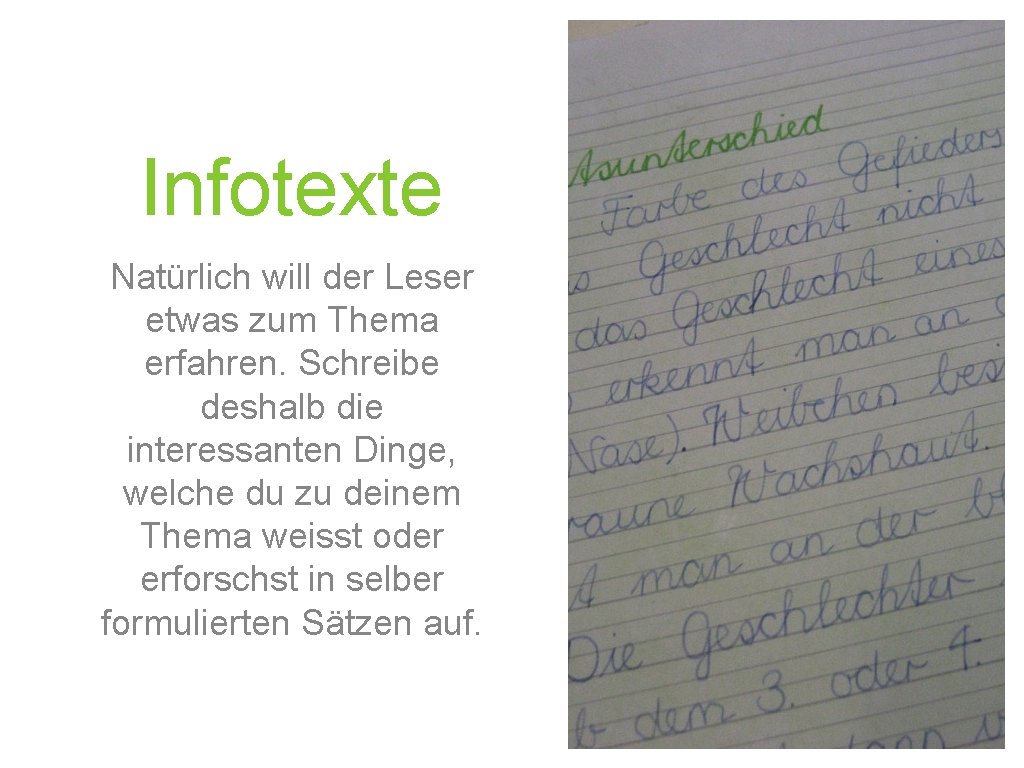 Infotexte
Natürlich will der Leser
etwas zum Thema
erfahren. Schreibe
deshalb die
interessanten Dinge,
welche du zu deinem
Thema weisst oder
erforschst in selber
formulierten Sätzen auf.
tsunterschied
Farbe des Gefieders
s Geschlecht nicht
das Geschlecht eines
erkennt man an
Nase). Weibchen besi
raune Wachshaut.
t man an der bl
Die Geschlechter
b dem 3. oder 4.